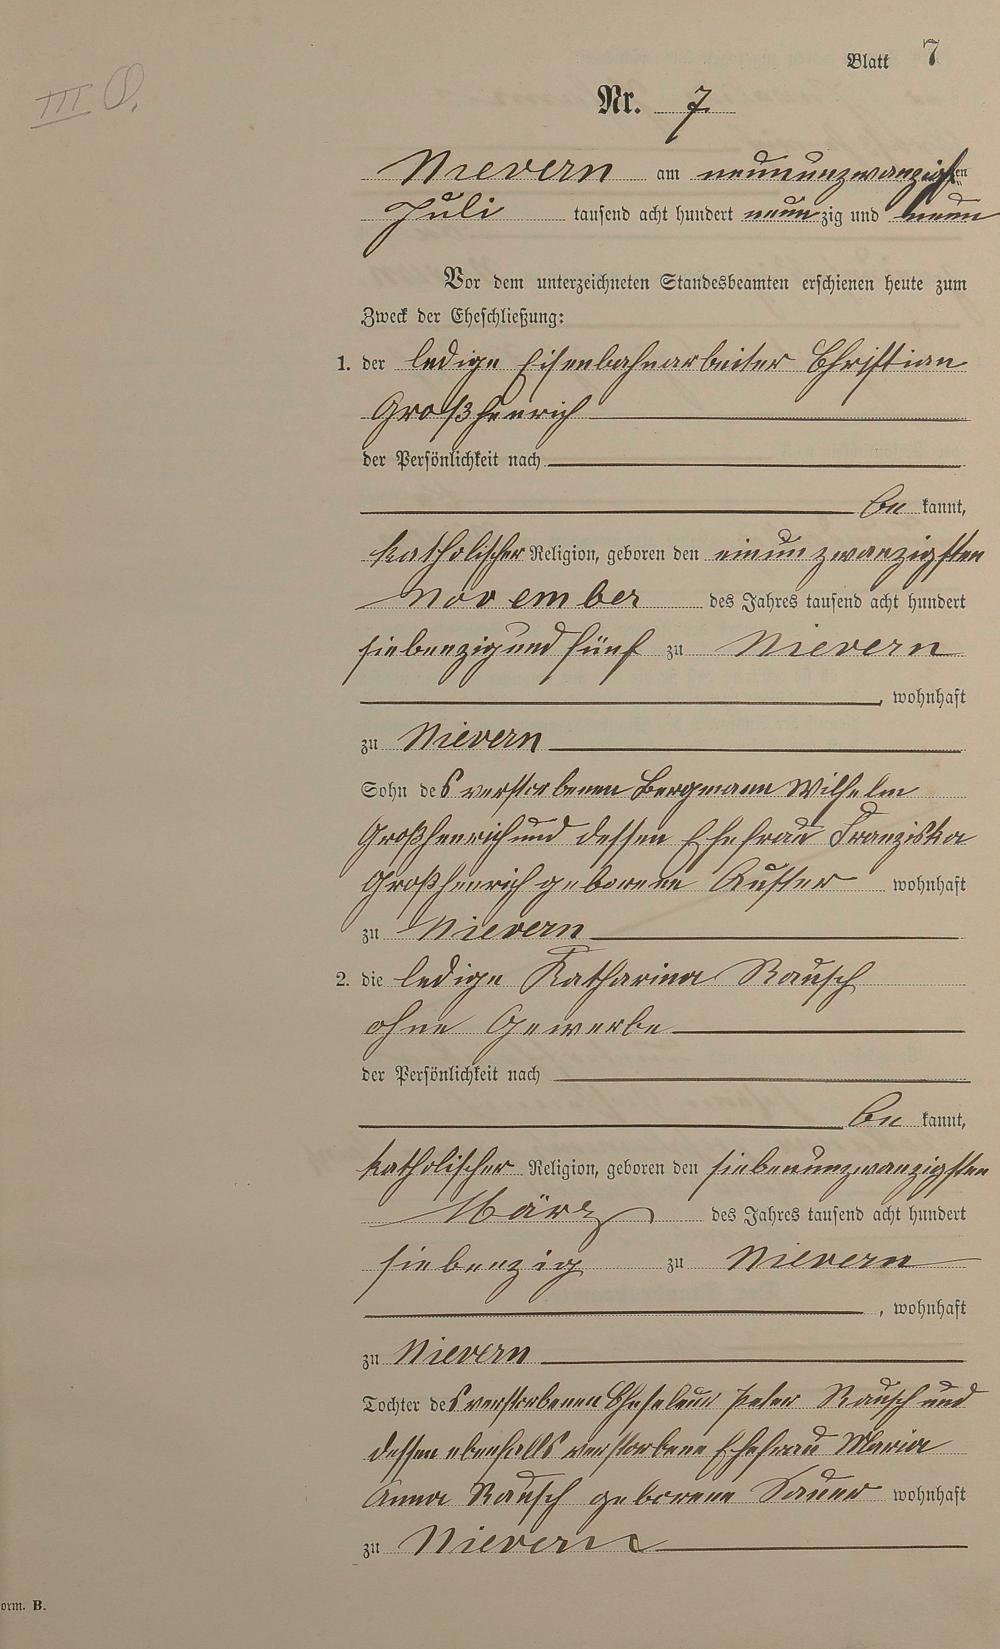 Blatt 7
III O.
Nr. 7.
Nievern am neunundzwanzigsten
Juli tausend acht hundert neunzig und neun
Vor dem unterzeichneten Standesbeamten erschienen heute zum
Zweck der Eheschließung:
1. der ledige Eisenbahnarbeiter Christian
Großhenrich
der Persönlichkeit nach
be kannt,
katholischer Religion, geboren den einunzwanzigsten
November des Jahres tausend acht hundert
siebenzig und fünf zu Nievern
, wohnhaft
zu Nievern
Sohn des verstorbenen Bergmann Wilhelm
Großhenrich und dessen Ehefrau Franziska
Großhenrich geborene wohnhaft
zu Nievern
2. die ledige Katharina Rausch
ohne Gewerbe
der Persönlichkeit nach
be kannt,
katholischer Religion, geboren den siebenunzwanzigsten
März des Jahres tausend acht hundert
siebenzig zu Nievern
, wohnhaft
zu Nievern
Tochter des verstorbenen Peter Rausch und
dessen ebenfalls verstorbene Ehefrau Maria
Anna Rausch geborene Sauer wohnhaft
zu Nievern
orm. B.